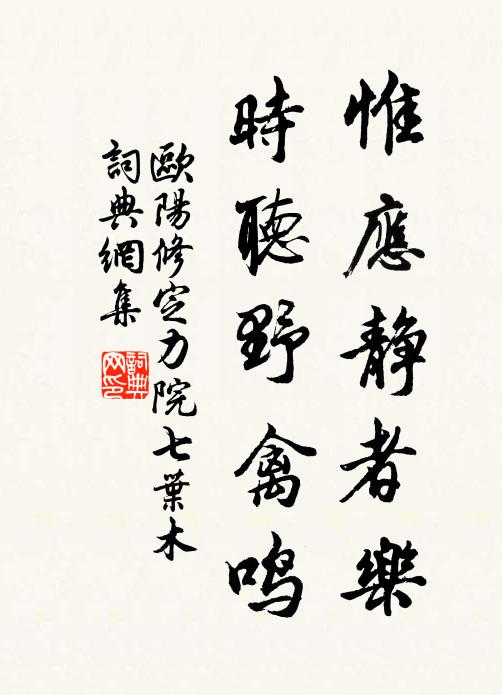 惟應静者樂
時聽野禽鸣
歐陽修定力院七葉木
詞典網集
詞典
网印